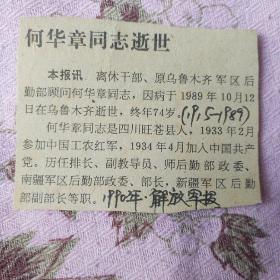 何华章同志逝世
本报讯 离休干部、原乌鲁木齐军区后
勤部顾问何华章同志，因病于1989年10月12
日在乌鲁木齐逝世，终年74岁。(1915-1989)
何华章同志是四川旺苍县人，1933年2月
参加中国工农红军，1934年4月加入中国共产
党。历任排长、副教导员、师后勤部政委、
南疆军区后勤部政委、部长，新疆军区后勤
部副部长等职。1990年 解放军报